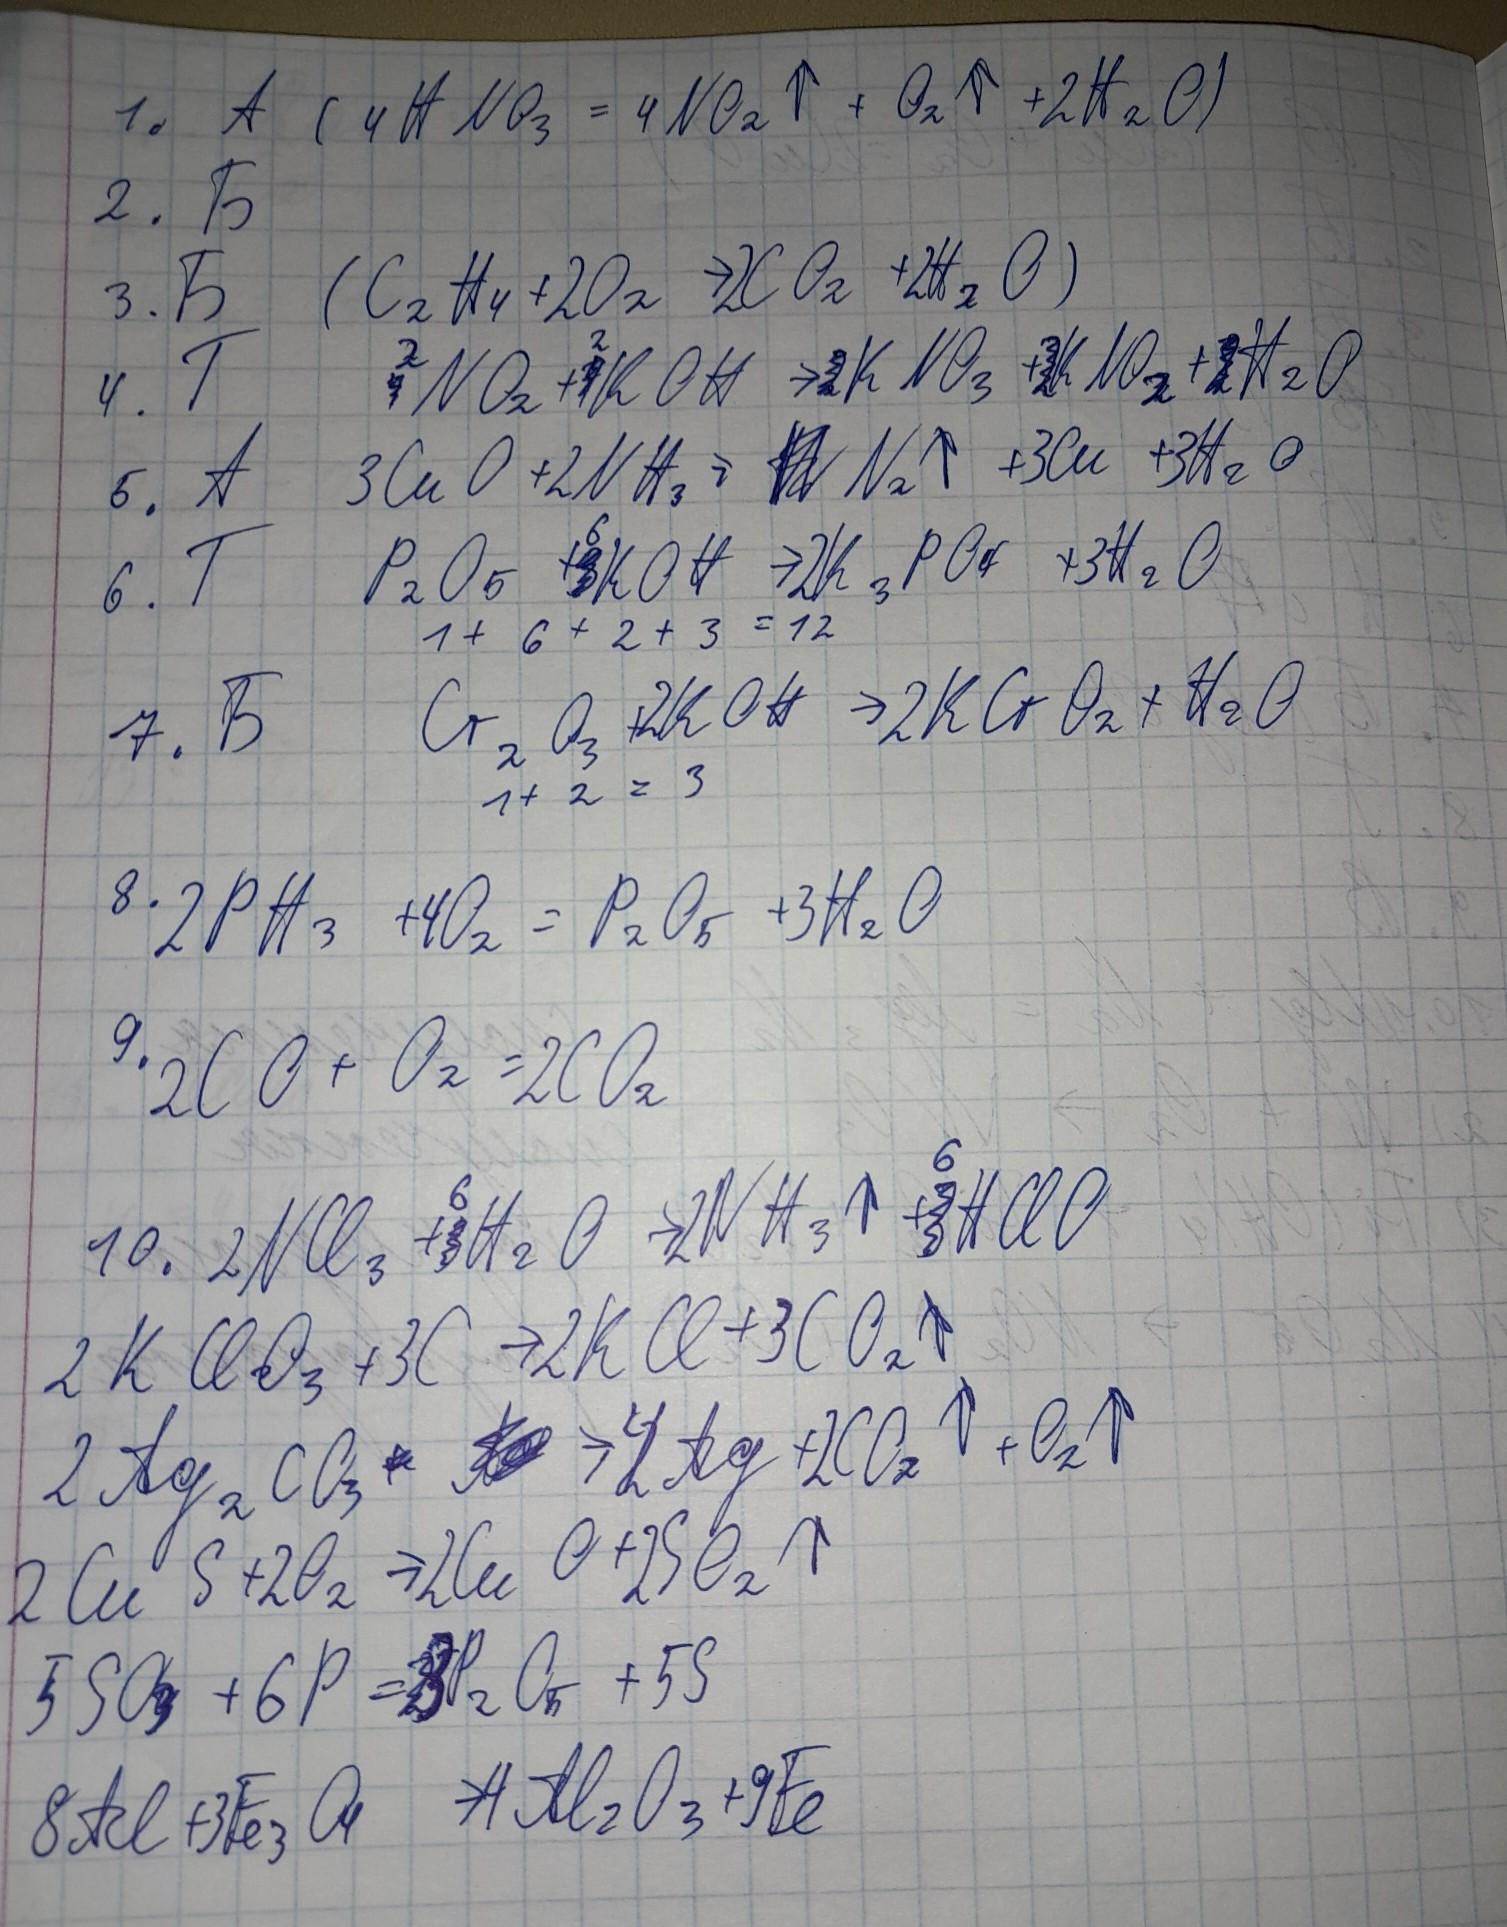 1. А (4HNO₃ = 4NO₂↑ + O₂↑ + 2H₂O)
2. Б
3. Б (C₂H₄ + 2O₂ → 2CO₂ + 2H₂O)
4. Г 2NO₂ + 2KOH → KNO₃ + KNO₂ + H₂O
5. А 3CuO + 2NH₃ = N₂↑ + 3Cu + 3H₂O
6. Г P₂O₅ + 6KOH → 2K₃PO₄ + 3H₂O
1 + 6 + 2 + 3 = 12
7. Б Cr₂O₃ + 2KOH → 2KCrO₂ + H₂O
1 + 2 = 3
8. 2PH₃ + 4O₂ = P₂O₅ + 3H₂O
9. 2CO + O₂ = 2CO₂
10. 2NCl₃ + 6H₂O → 2NH₃↑ + 6HClO
2KClO₃ + 3C → 2KCl + 3CO₂↑
2Ag₂CO₃ → 4Ag + 2CO₂↑ + O₂↑
2CuS + 2O₂ → 2CuO + 2SO₂↑
5SO₃ + 6P = 3P₂O₅ + 5S
8Al + 3Fe₃O₄ → 4Al₂O₃ + 9Fe